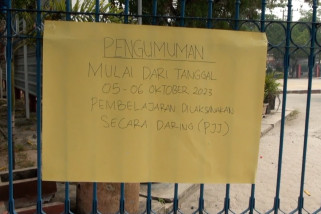 PENGUMUMAN
MULAI DARI TANGGAL
05-06 OKTOBER 2023
PEMBELAJARAN DILAKSANAKAN
SECARA DARING (PJJ)